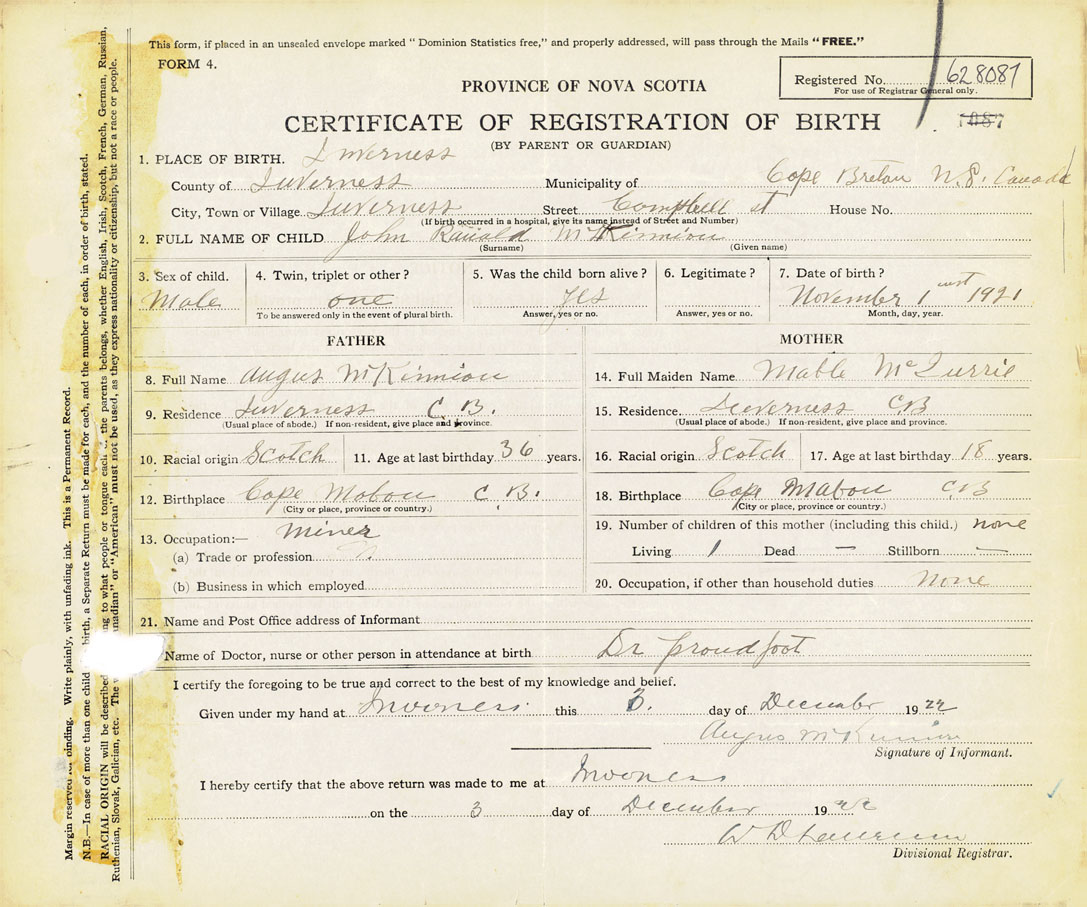 This form, if placed in an unsealed envelope marked "Dominion Statistics free," and properly addressed, will pass through the Mails "FREE."
FORM 4.
PROVINCE OF NOVA SCOTIA
Registered No. 628087
For use of Registrar General only.
CERTIFICATE OF REGISTRATION OF BIRTH
(BY PARENT OR GUARDIAN)
1. PLACE OF BIRTH. Inverness
County of Inverness Municipality of Cape Breton N.S. Canada
City, Town or Village Inverness Street Campbell st House No.
(If birth occurred in a hospital, give its name instead of Street and Number)
2. FULL NAME OF CHILD John Ranald McKinnion
(Surname) (Given name)
3. Sex of child. 4. Twin, triplet or other? 5. Was the child born alive? 6. Legitimate? 7. Date of birth?
Male one yes November 1 1921
To be answered only in the event of plural birth. Answer, yes or no. Answer, yes or no. Month, day, year.
FATHER
8. Full Name Angus McKinnion
9. Residence Inverness C. B.
(Usual place of abode.) If non-resident, give place and province.
10. Racial origin Scotch 11. Age at last birthday 36 years.
12. Birthplace Cape Mabou C. B.
(City or place, province or country.)
13. Occupation:— miner
(a) Trade or profession
(b) Business in which employed
MOTHER
14. Full Maiden Name Mable
15. Residence. Inverness C.B
(Usual place of abode.) If non-resident, give place and province.
16. Racial origin Scotch 17. Age at last birthday 18 years.
18. Birthplace Cape Mabou C.B
(City or place, province or country.)
19. Number of children of this mother (including this child.) none
Living 1 Dead — Stillborn —
20. Occupation, if other than household duties none
21. Name and Post Office address of Informant
Name of Doctor, nurse or other person in attendance at birth Dr Proudfoot
I certify the foregoing to be true and correct to the best of my knowledge and belief.
Given under my hand at Inverness this 3. day of December 1922
Angus McKinnion
Signature of Informant.
I hereby certify that the above return was made to me at Inverness
on the 3 day of December 1922
Divisional Registrar.
Margin reserved for binding. Write plainly, with unfading ink. This is a Permanent Record.
N.B.—In case of more than one child birth, a Separate Return must be made for each, and the number of each, in order of birth, stated.
RACIAL ORIGIN will be described to what people or tongue each the parents belongs, whether English, Irish, Scotch, French, German, Russian,
Ruthenian, Slovak, Galician, etc. The "American" must not be used, as they express nationality or citizenship, but not a race or people.